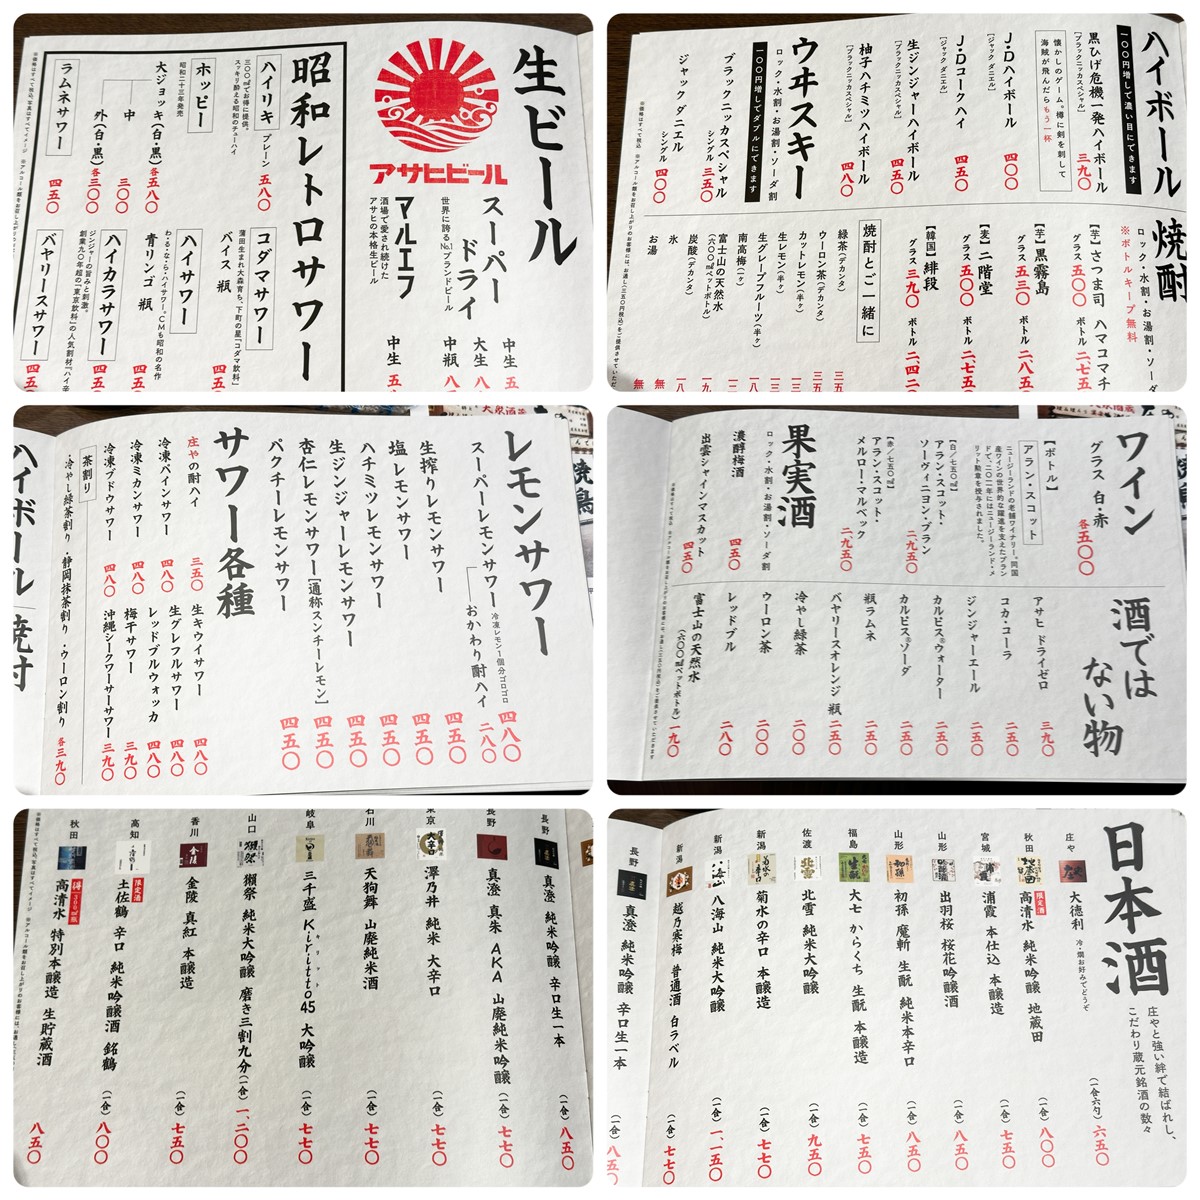 生ビール
スーパードライ
中生 五
大生 八
世界に誇るNo.1ブランドビール
中瓶 八
マルエフ
酒場で愛され続けた
アサヒの本格生ビール
中生 五
アサヒビール
昭和レトロサワー
ハイリキ プレーン 五八〇
三〇〇㎖でお得に提供。
スッキリ酔える昭和のチューハイ
ホッピー
昭和二十三年発売
大ジョッキ(白・黒) 各五八〇
中 三〇〇
外(白・黒) 各三〇〇
ラムネサワー 四五〇
コダマサワー
蒲田生まれ大森育ち、下町の星『コダマ飲料』
バイス 瓶 四五
ハイサワー
わ・る・な・ら・ハイサワー。CMも昭和の名作
青リンゴ 瓶 四五
ハイカラサワー 四五
ジンジャーの旨みと刺激。
創業九〇年超の「東京飲料」の人気割材『ハイ辛
バヤリースサワー 四五
ハイボール
一〇〇円増しで濃い目にできます
黒ひげ危機一発ハイボール 三九〇
[ブラックニッカスペシャル]
懐かしのゲーム。樽に剣を刺して
海賊が飛んだらもう一杯
J・Dハイボール 四〇〇
[ジャック ダニエル]
J・Dコークハイ 四五〇
[ジャック ダニエル]
生ジンジャーハイボール 四五〇
[ブラックニッカスペシャル]
柚子ハチミツハイボール 四八〇
[ブラックニッカスペシャル]
ウヰスキー
ロック・水割・お湯割・ソーダ割
一〇〇円増しでダブルにできます
ブラックニッカスペシャル
シングル 三五〇
ジャックダニエル
シングル 四〇〇
焼酎
ロック・水割・お湯割・ソーダ
※ボトルキープ無料
【芋】さつま司 ハマコマチ
グラス 五〇〇 ボトル 二、七五
【芋】黒霧島
グラス 五三〇 ボトル 二、八五
【麦】二階堂
グラス 五〇〇 ボトル 二、七五
【韓国】緋段
グラス 三九〇 ボトル 二、四二
焼酎とご一緒に
緑茶(デカンタ) 三五
ウーロン茶(デカンタ) 三五
カットレモン(半ヶ)
生レモン(半ヶ)
生グレープフルーツ(半ヶ)
南高梅(一ヶ)
富士山の天然水
(六〇〇㎖ペットボトル)
炭酸(デカンタ)
氷 無
お湯 無
レモンサワー
スーパーレモンサワー 冷凍レモン1個分ゴロゴロ 四八〇
おかわり酎ハイ 二八〇
生搾りレモンサワー 四五〇
塩レモンサワー 四五〇
ハチミツレモンサワー 四五〇
生ジンジャーレモンサワー 四五〇
杏仁レモンサワー[通称スンチーレモン] 四五〇
パクチーレモンサワー 四五〇
サワー各種
庄やの酎ハイ 三五〇
冷凍パインサワー 四八〇
冷凍ミカンサワー 四八〇
冷凍ブドウサワー 四八〇
生キウイサワー 四八〇
生グレフルサワー 四八〇
レッドブルウォッカ 四八〇
梅干サワー 三九〇
沖縄シークワーサーサワー 三九〇
茶割り
・冷やし緑茶割り ・静岡抹茶割り ・ウーロン割り 各三九〇
ハイボール
焼酎
ワイン
グラス 白・赤 各五〇〇
【ボトル】
アラン・スコット
ニュージーランドの老舗ワイナリー。同国
産ワインの世界的な躍進を支えたアラン
ドで、二〇一一年にはニュージーランド・メ
リット勲章を授与されました。
【白/七五〇㎖】
アラン・スコット・
ソーヴィニヨン・ブラン 二、九五〇
【赤/七五〇㎖】
アラン・スコット・
メルロー・マルベック 二、九五〇
果実酒
ロック・水割・お湯割・ソーダ割
濃醇梅酒 四五〇
出雲シャインマスカット 四五〇
酒ではない物
アサヒ ドライゼロ 三九〇
コカ・コーラ 二五〇
ジンジャーエール 二五〇
カルピス®ウォーター 二五〇
カルピス®ソーダ 二五〇
瓶ラムネ 二五〇
バヤリースオレンジ 瓶 二五〇
冷やし緑茶 二〇〇
ウーロン茶 二〇〇
レッドブル 二八〇
富士山の天然水 (六〇〇㎖ペットボトル) 一九〇
長野 真澄 純米吟醸 辛口生一本 (一合) 八五〇
長野 真澄 真朱 AKA 山廃純米吟醸 (一合) 七七〇
東京 澤乃井 純米 大辛口 (一合) 七七〇
石川 天狗舞 山廃純米酒 (一合) 七七〇
岐阜 三千盛 Kiritto45 大吟醸 (一合) 七七〇
キリット
山口 獺祭 純米大吟醸 磨き三割九分 (一合) 一、二〇〇
香川 金陵 真紅 本醸造 (一合) 七五〇
高知 限定酒 土佐鶴 辛口 純米吟醸酒 銘鶴 (一合) 八〇〇
秋田 樽 300㎖瓶 高清水 特別本醸造 生貯蔵酒 八五〇
日本酒
庄やと強い絆で結ばれし、
こだわり蔵元銘酒の数々
庄や 大徳利 冷・燗お好みでどうぞ (一合六勺) 六五〇
秋田 限定酒 高清水 純米吟醸 地蔵田 (一合) 八〇〇
宮城 浦霞 本仕込 本醸造 (一合) 七五〇
山形 出羽桜 桜花吟醸酒 (一合) 八五〇
山形 初孫 魔斬 生酛 純米本辛口 (一合) 八五〇
福島 大七 からくち 生酛 本醸造 (一合) 八五〇
佐渡 北雪 純米大吟醸 (一合) 九五〇
新潟 菊水の辛口 本醸造 (一合) 七七〇
新潟 八海山 純米大吟醸 (一合) 一、一五〇
新潟 越乃寒梅 普通酒 白ラベル (一合) 七七〇
長野 真澄 純米吟醸 辛口生一本 (一合) 八五〇